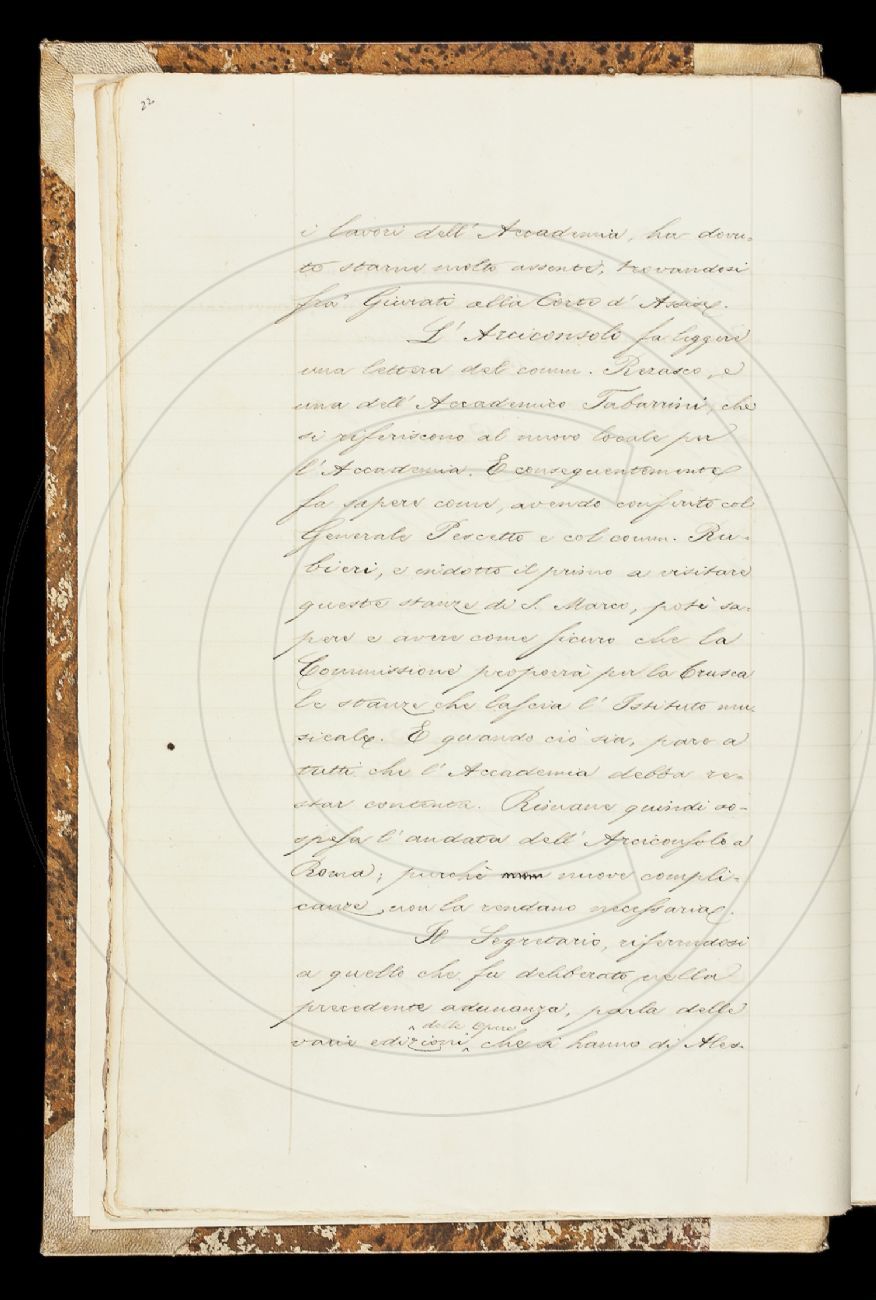 22
i lavori dell' Accademia, ha dovu-
to starne molto assente, trovandosi
fra' Giurati alla Corte d' Assise.
L' Arciconsolo fa leggere
una lettera del comm. Rezasco, e
una dell' Accademico Tabarrini, che
si riferiscono al nuovo locale per
l' Accademia. E conseguentemente
fa sapere come, avendo conferito col
Generale Pescetto e col comm. Ru-
bieri, e indotto il primo a visitare
queste stanze di S. Marco, potè sa-
pere e avere come sicuro che la
Commissione proporrà per la Crusca
le stanze che lascia l' Istituto mu-
sicale. E quando ciò sia, pare a
tutti che l' Accademia debba re-
star contenta. Rimane quindi so-
spesa l' andata dell' Arciconsolo a
Roma; purchè nuove compli-
canze non la rendano necessaria.
Il Segretario, riferendosi
a quello che fu deliberato nella
precedente adunanza, parla delle
delle Opere
varie edizioni che si hanno di Ales-